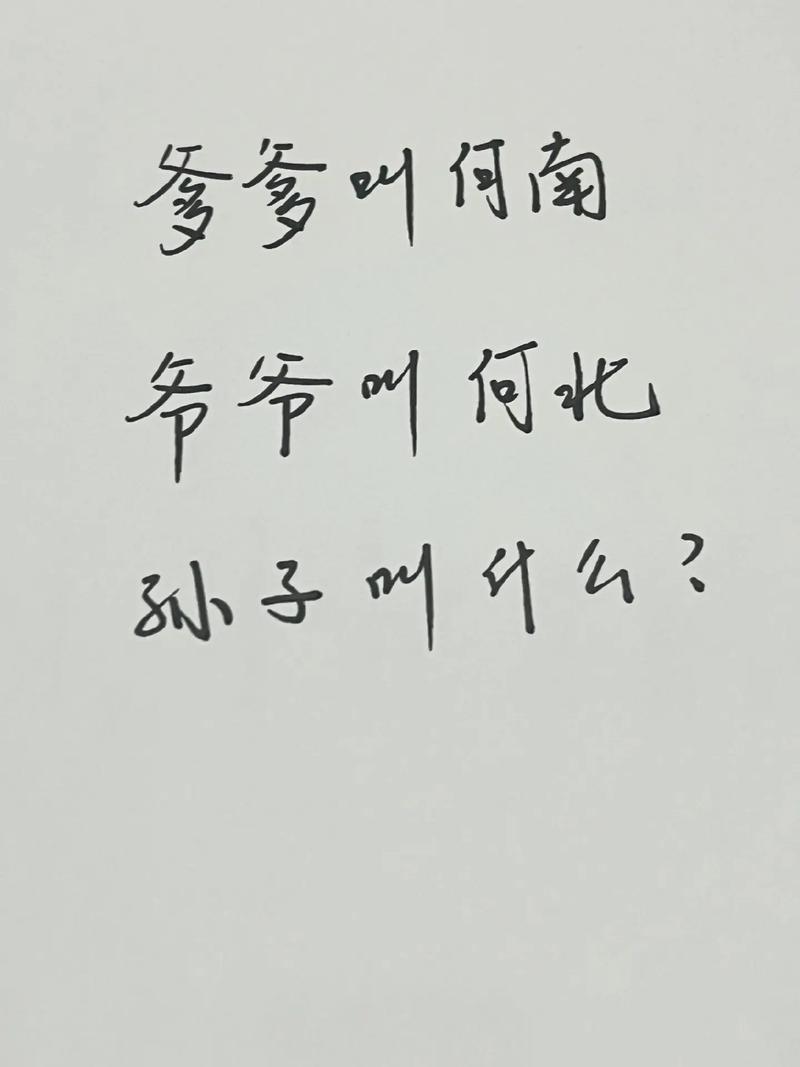 爹爹叫何南
爷爷叫何北
孙子叫什么?